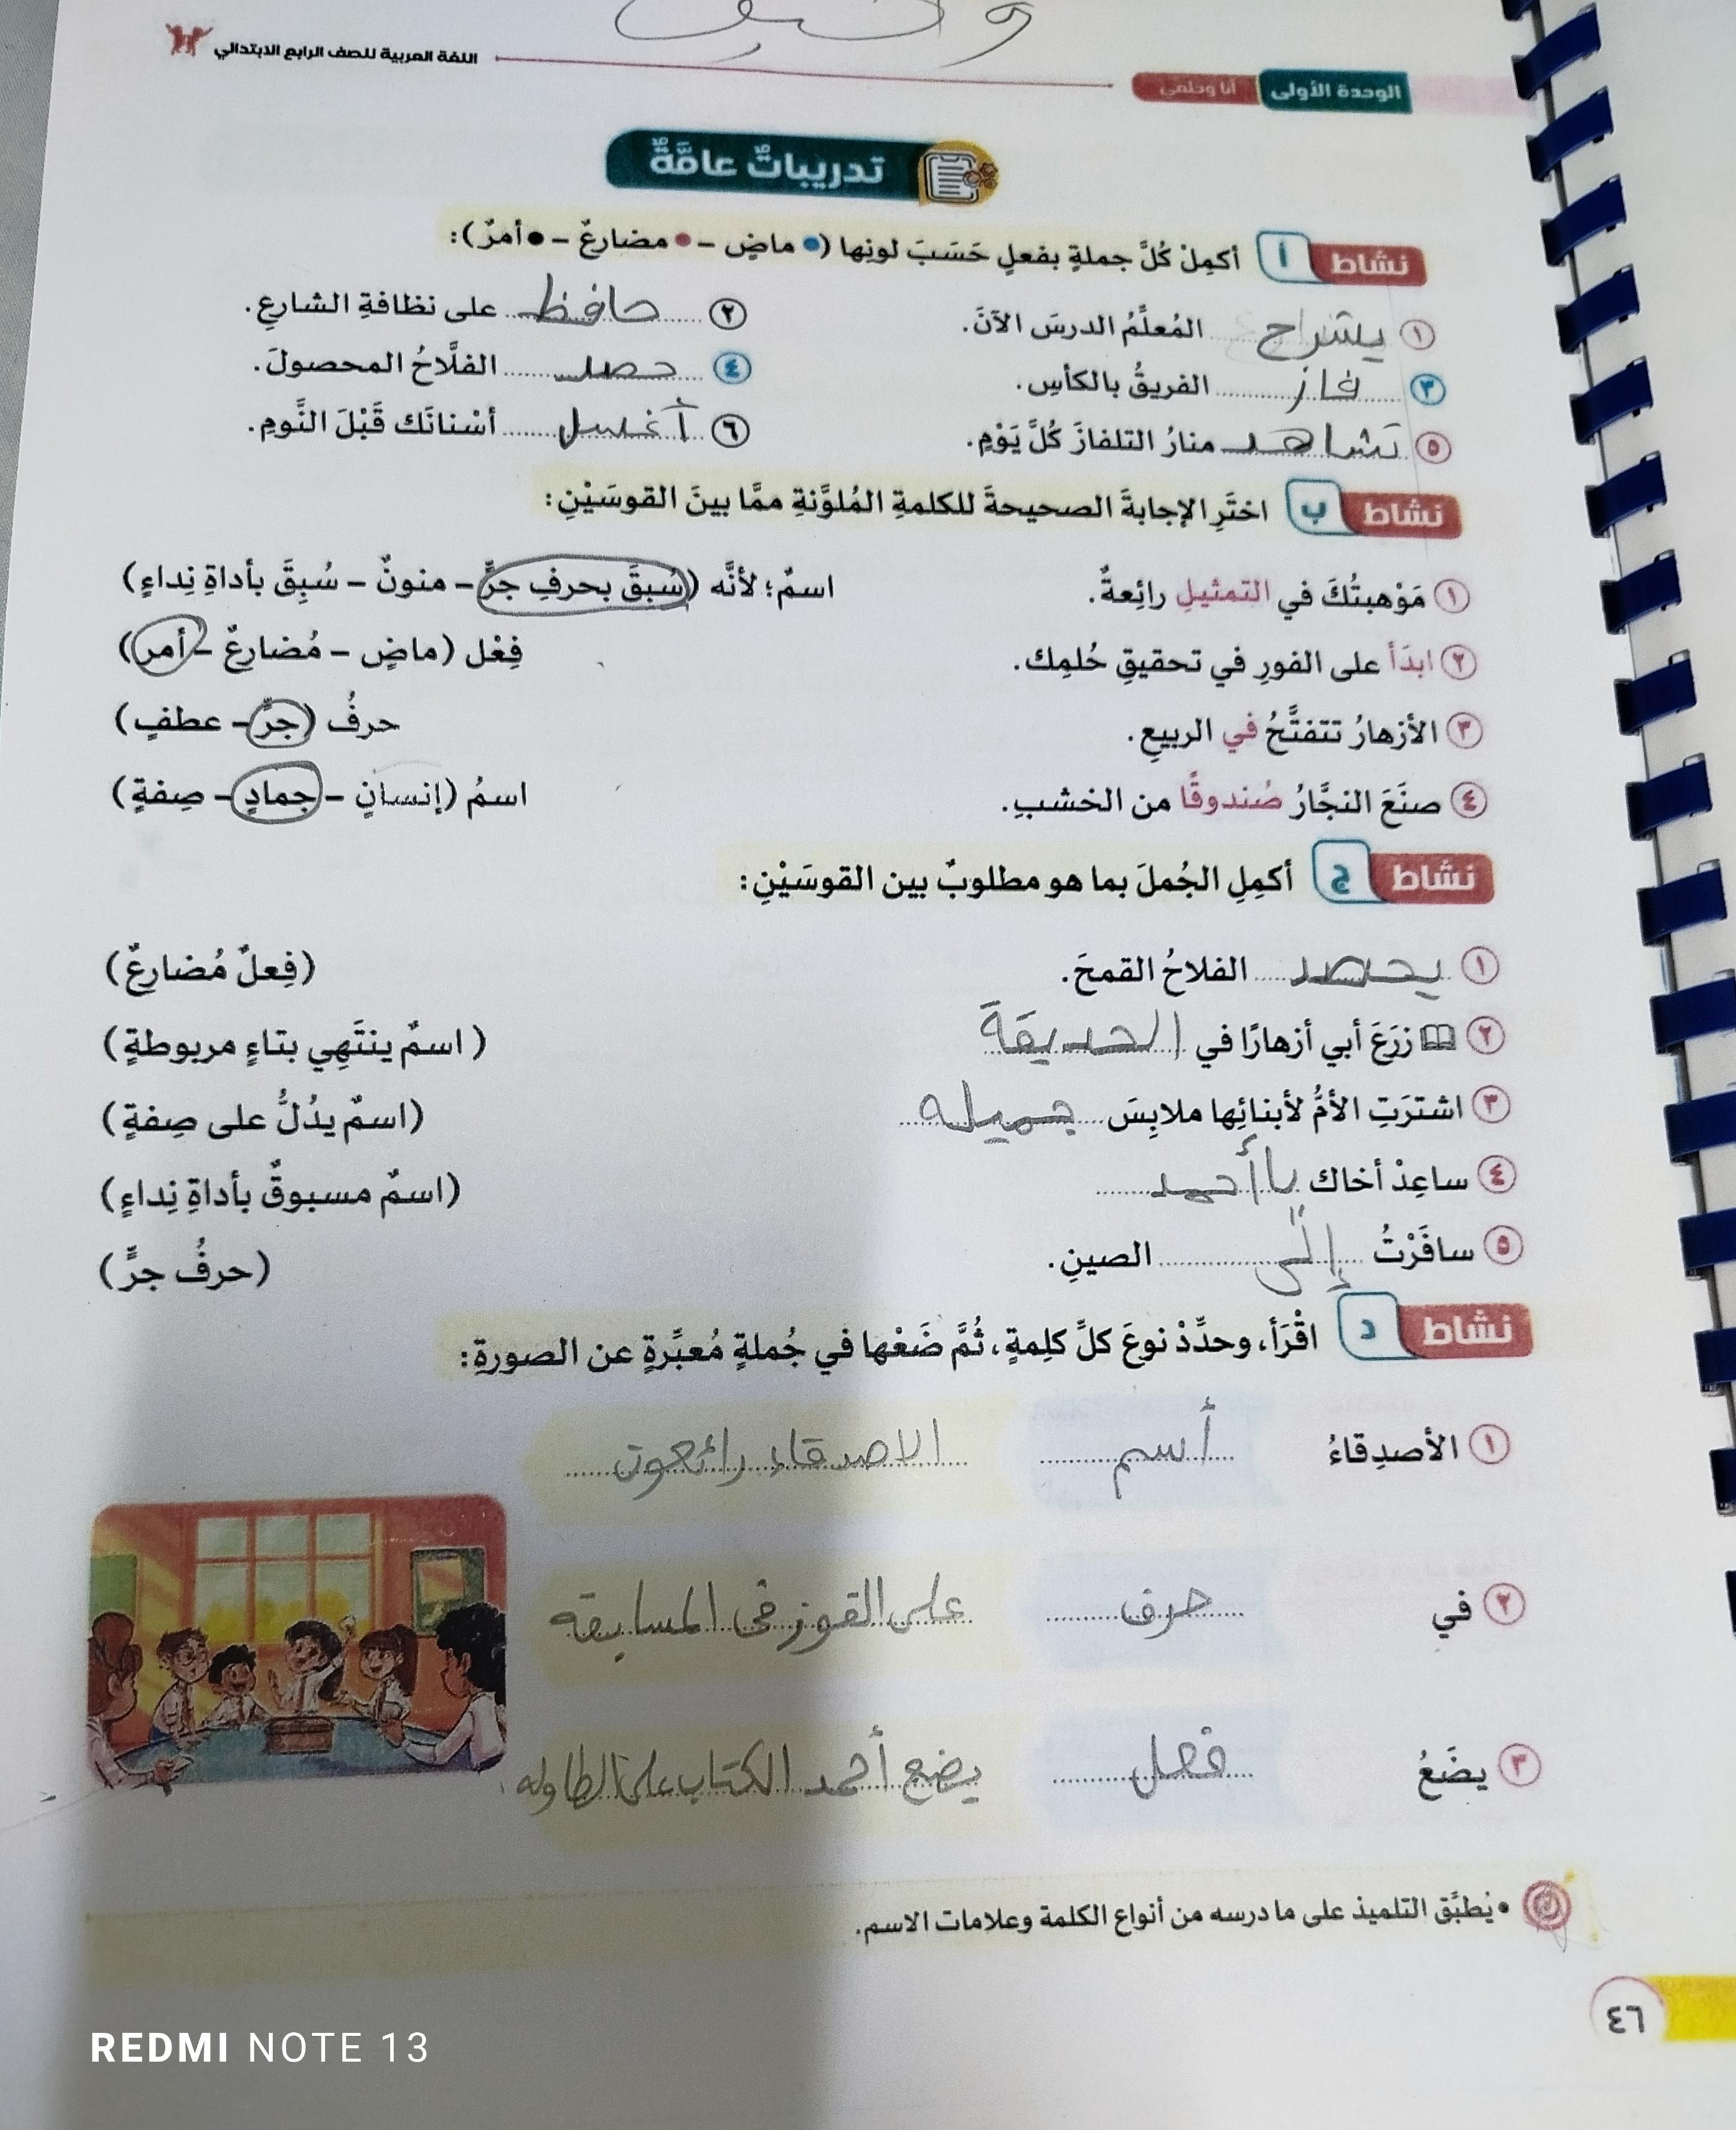 الوحدة الأولى أنا وحلمي
اللغة العربية للصف الرابع الابتدائي
تدريباتٌ عامَّةٌ
نشاط أ أكمِلْ كُلَّ جملةٍ بفعلٍ حَسَبَ لونِها (● ماضٍ - ● مضارعٌ - ● أمرٌ):
١ يشراح المُعلِّمُ الدرسَ الآنَ.
٢ حافظ على نظافةِ الشارعِ.
٣ فاز الفريقُ بالكأسِ.
٤ حصد الفلَّاحُ المحصولَ.
٥ تشاهد منارُ التلفازَ كُلَّ يَوْمٍ.
٦ أغسل أسْنانَك قَبْلَ النَّومِ.
نشاط ب اختَرِ الإجابةَ الصحيحةَ للكلمةِ المُلوَّنةِ ممَّا بينَ القوسَيْنِ:
١ مَوْهبتُكَ في التمثيلِ رائِعةٌ. اسمٌ؛ لأنَّه (سُبقَ بحرفِ جرٍّ - منونٌ - سُبِقَ بأداةِ نِداءٍ)
٢ ابدَأ على الفورِ في تحقيقِ حُلمِك. فِعْل (ماضٍ - مُضارعٌ - أمر)
٣ الأزهارُ تتفتَّحُ في الربيعِ. حرفُ (جرٍّ - عطفٍ)
٤ صنَعَ النجَّارُ صُندوقًا من الخشبِ. اسمُ (إنسانٍ - جمادٍ - صِفةٍ)
نشاط ج أكمِلِ الجُملَ بما هو مطلوبٌ بين القوسَيْنِ:
١ يحصد الفلاحُ القمحَ. (فِعلٌ مُضارعٌ)
٢ زرَعَ أبي أزهارًا في الحديقَةَ (اسمٌ ينتَهِي بتاءٍ مربوطةٍ)
٣ اشترَتِ الأمُّ لأبنائِها ملابِسَ جميله (اسمٌ يدُلُّ على صِفةٍ)
٤ ساعِدْ أخاك يا أحمد (اسمٌ مسبوقٌ بأداةِ نِداءٍ)
٥ سافَرْتُ إلى الصينِ. (حرفُ جرٍّ)
نشاط د اقْرَأ، وحدِّدْ نوعَ كلِّ كلِمةٍ، ثُمَّ ضَعْها في جُملةٍ مُعبِّرةٍ عن الصورةِ:
١ الأصدِقاءُ أسم الاصدقاء رائعون
٢ في حرف على الفوز في المسابقه
٣ يضَعُ فعل يضع أحمد الكتاب على الطاوله
• يُطبِّق التلميذ على ما درسه من أنواع الكلمة وعلامات الاسم.
٤٦
REDMI NOTE 13